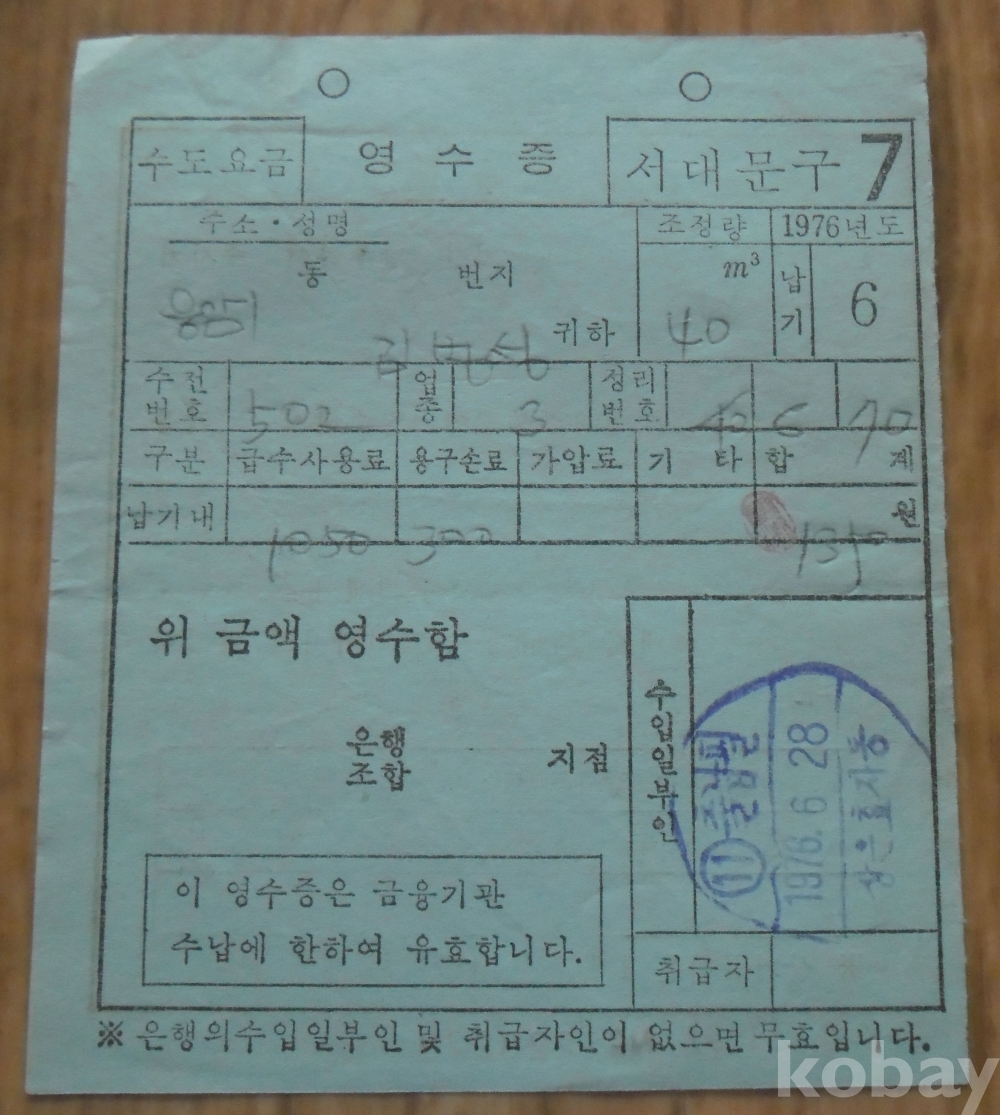 수도요금 영수증 서대문구 7
주소·성명 조정량 1976년도
동 번지 m³ 납기 6
귀하 40
수전번호 502 업종 3 정리번호 6 70
구분 급수사용료 용구손료 가압료 기타 합계
납기내 1050 300 1350 원
위 금액 영수함
수입일부인
은행 조합 지점
⑪ 출납필
1976. 6 28
상은효자동
이 영수증은 금융기관
수납에 한하여 유효합니다.
취급자
※ 은행의수입일부인 및 취급자인이 없으면 무효입니다.
kobay